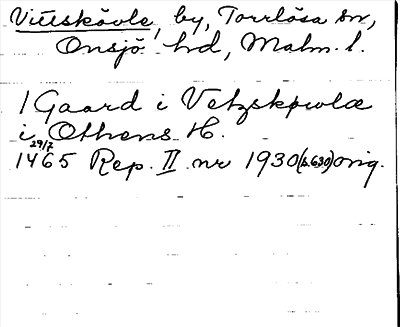 Vittskövle, by, Torrlösa sn,
Onsjö hd, Malm. l.
1 Gaard i Vetzskøwlæ
i Othens H.
29/7
1465 Rep. II nr 1930 (s. 630) orig.